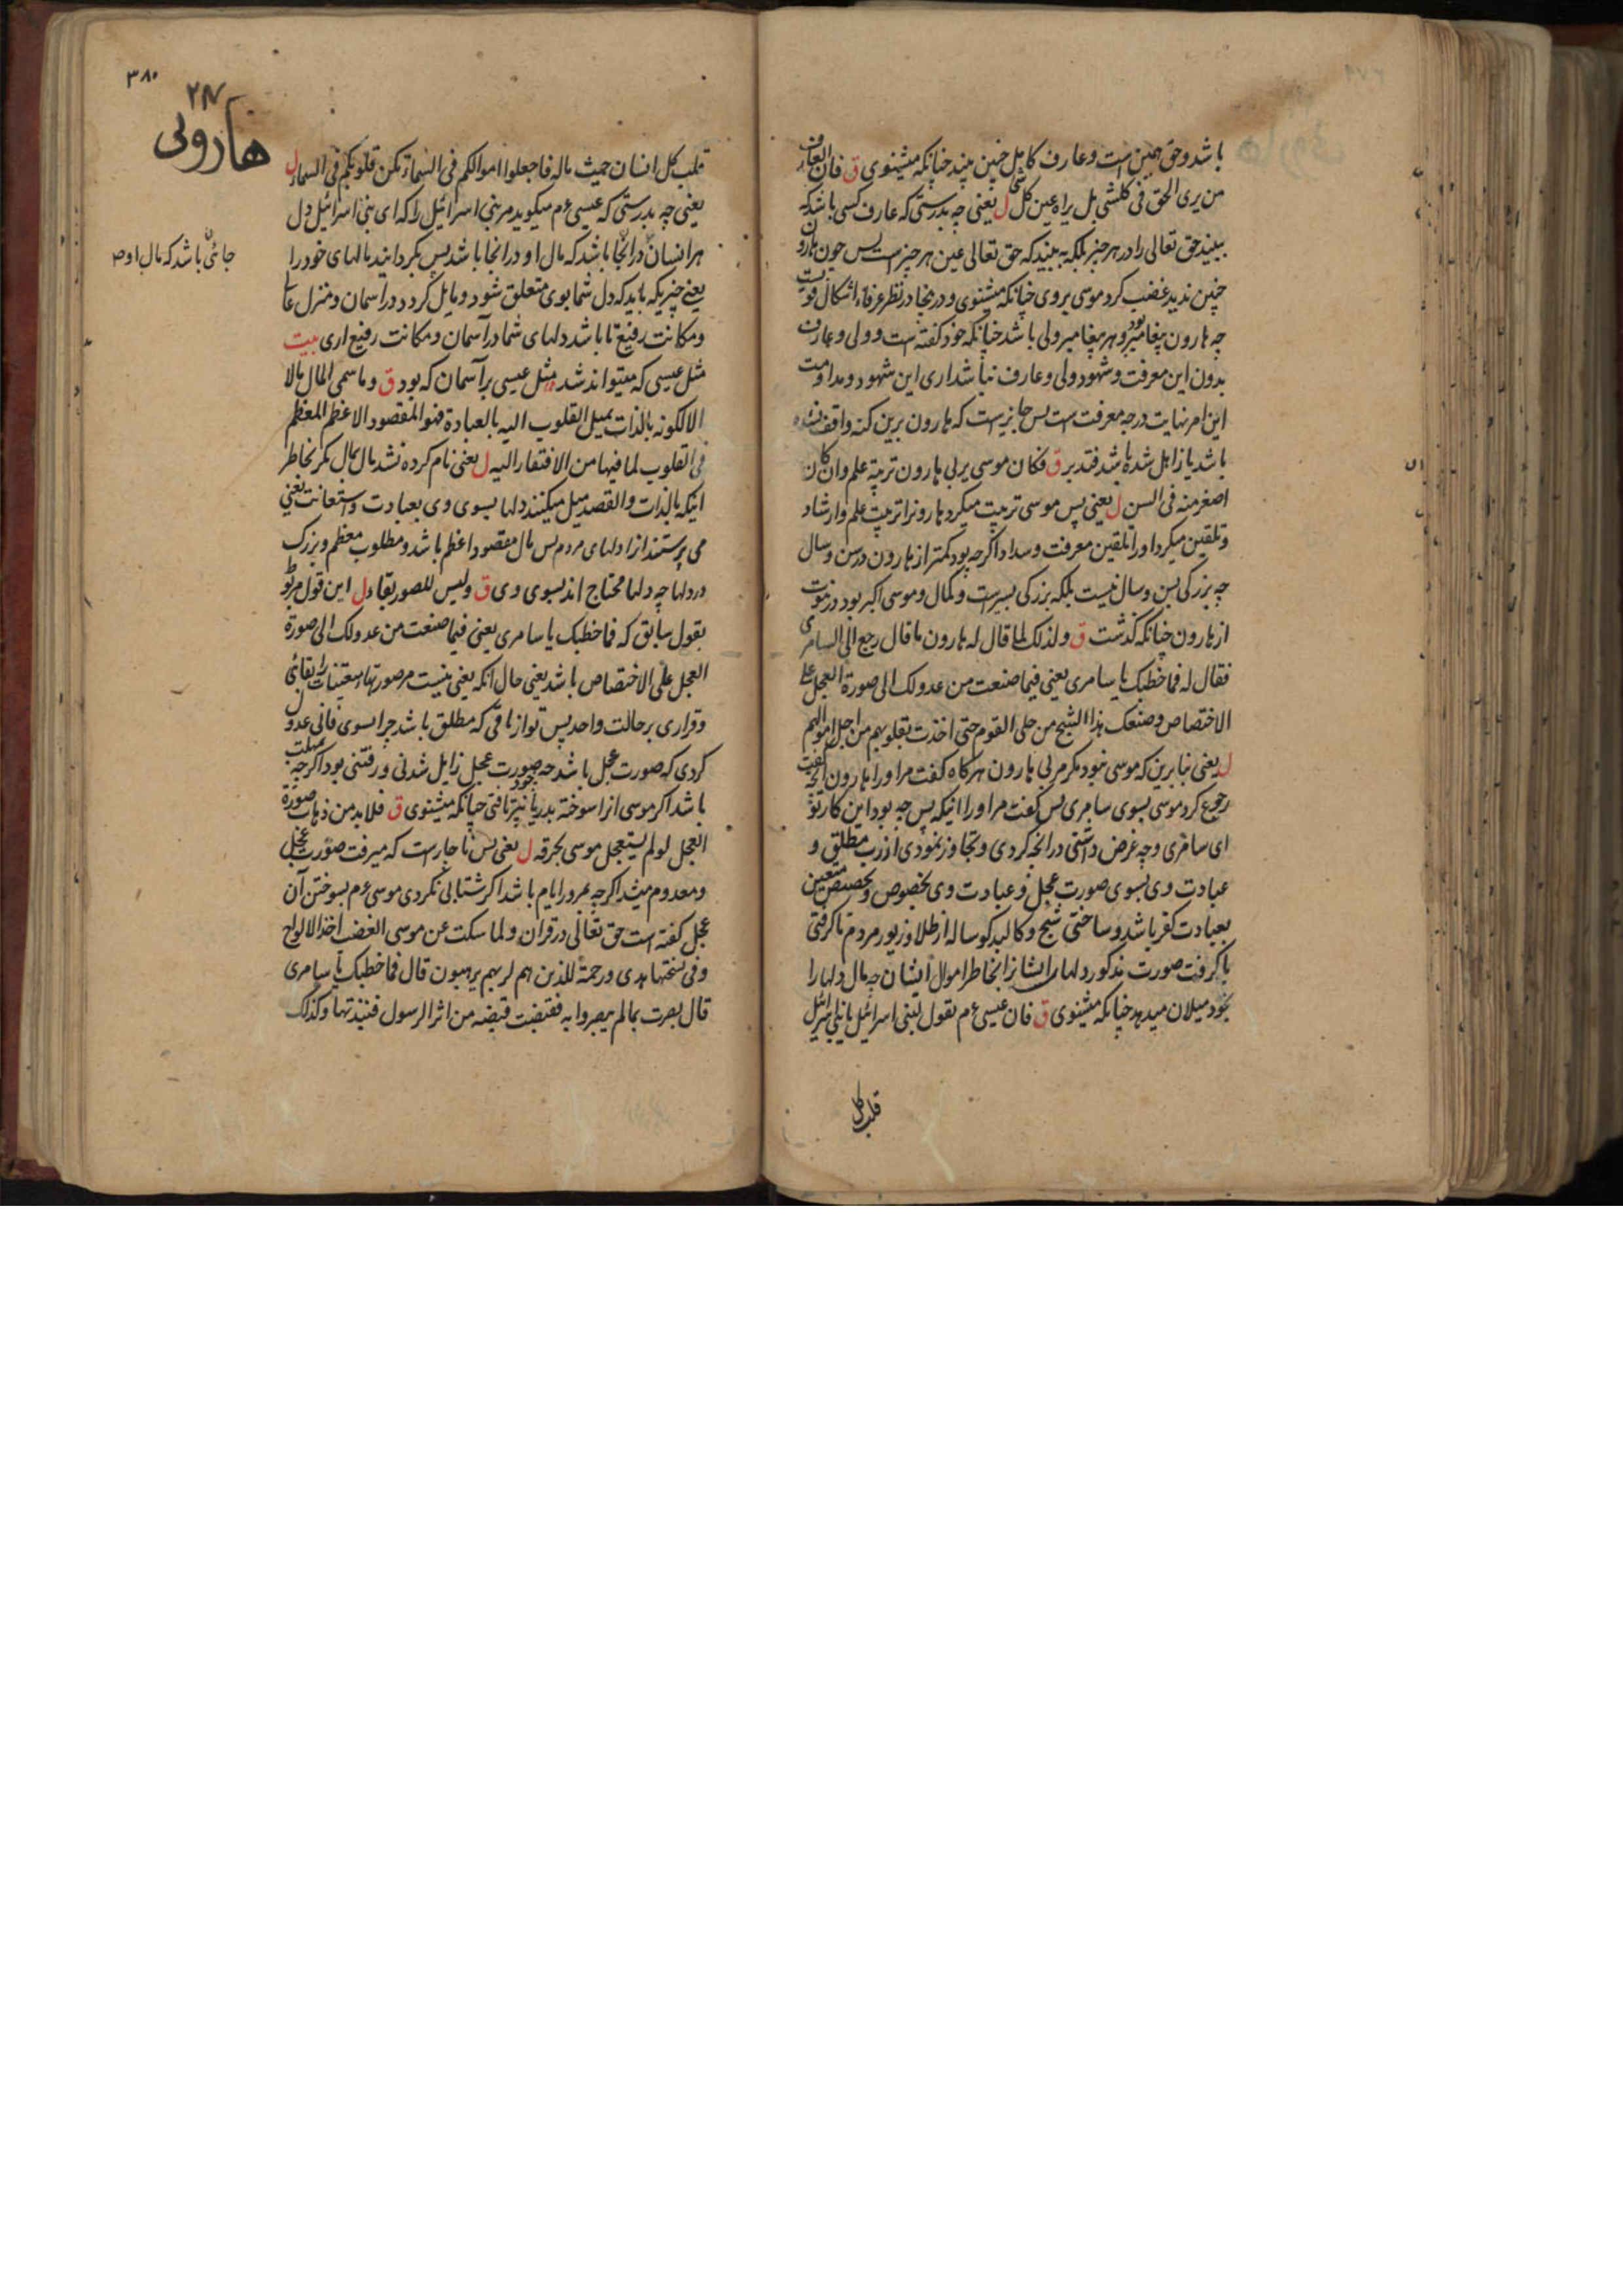 باشد و حق همین است و عارف کامل چنین بیند چنانکه میشنوی ق فان العارف
من یری الحق فی کلشی بل یراه عین کل شی ل یعنی چه بدرستی که عارف کسی باشد که
ببیند حق تعالی را در هر چیز بلکه به بیند که حق تعالی عین هر چیز است پس چون هارون
چنین ندید غضب کرد موسی بروی چنانکه میشنوی و درینجا در نظر عرفاء اشکال قویست
چه هارون پیغامبر بود و هر پیغامبر ولی باشد چنانکه خود گفته است و ولی و عارف
بدون این معرفت و شهود ولی و عارف نباشد اری این شهود و مداومت
این امر نهایت درجه معرفت است پس جایز است که هارون برین نکته واقف نشده
باشد یا زایل شده باشد فتدبر ق فکان موسی یربی هارون تربیة علم وان کان
اصغر منه فی السن ل یعنی پس موسی تربیت میکرد هارون را تربیت علم و ارشاد
و تلقین میکرد او را تلقین معرفت و سداد اگرچه بود کمتر از هارون در سن و سال
چه بزرگی بسن و سال نیست بلکه بزرگی بسیرت و کمال و موسی اکبر بود در نبوت
از هارون چنانکه گذشت ق ولذلک لما قال له هارون ما قال رجع الی السامری
فقال له فما خطبک یا سامری یعنی فیما صنعت من عدولک الی صورة العجل علی
الاختصاص و صنعک هذا الشبح من حلی القوم حتی اخذت بقلوبهم من اجل اموالهم
ل یعنی بنابرین که موسی نبود مگر مربی هارون هرگاه گفت مر او را هارون آنچه گفت
رجوع کرد موسی بسوی سامری پس گفت مر او را اینکه پس چه بود این کار تو
ای سامری و چه غرض داشتی در آنچه کردی و تجاوز نمودی از رب مطلق و
عبادت وی بسوی صورت عجل و عبادت وی بخصوص و تخصیص متعین
بعبادت کفر باشد و ساختی شبح و کالبد گوساله از طلا و زیور مردم تا گرفتی
با گرفت صورت مذکور دلها را ایشانرا بخاطر اموال ایشان چه مال دلها را
بخود میلان میدهد چنانکه میشنوی ق فان عیسی ع م یقول لبنی اسرائیل یا بنی اسرائیل
قلب کل
۳۸۰
هارونی
قلب کل انسان حیث ماله فاجعلوا اموالکم فی السماء تکن قلوبکم فی السماء ل
یعنی چه بدرستی که عیسی ع م میگوید مر بنی اسرائیل را که ای بنی اسرائیل دل
هر انسان در آنجا باشد که مال او در آنجا باشد پس بگردانید مالهای خود را
یعنی چیزیکه باید که دل شما بوی متعلق شود و مایل گردد در اسمان و منزل عالی
و مکانت رفیع تا باشد دلهای شما در آسمان و مکانت رفیع اری بیت
مثل عیسی که میتواند شد مثل عیسی بر آسمان که بود ق وما سمی المال مالا
الا لکونه بالذات یمیل القلوب الیه بالعبادة فهو المقصود الاعظم المعظم
فی القلوب لما فیها من الافتقار الیه ل یعنی نام کرده نشد مال بمال مگر بخاطر
اینکه بالذات والقصد میل میکنند دلها بسوی وی بعبادت و استعانت یعنی
می پرستند انرا دلهای مردم پس مال مقصود اعظم باشد و مطلوب معظم و بزرگ
در دلها چه دلها محتاج اند بسوی وی ق ولیس للصور بقاء ل این قول مربوط
بقول سابق که فما خطبک یا سامری یعنی فیما صنعت من عدولک الی صورة
العجل علی الاختصاص باشد یعنی حال آنکه یعنی نیست مر صورتها و تعینات را بقائی
و قراری بر حالت واحد پس تو از باقی که مطلق باشد چرا بسوی فانی عدول
کردی که صورت عجل باشد چه صورت عجل زایل شدنی و رفتنی بود اگرچه
باشد اگر موسی انرا سوخته بدریا نمی انداخت چنانکه میشنوی ق فلا بد من ذهاب صورة
العجل لو لم یستعجل موسی بحرقه ل یعنی پس ناچار است که میرفت صورت عجل
و معدوم میشد اگرچه بمرور ایام باشد اگر شتابی نکردی موسی ع م بسوختن آن
عجل گفته است حق تعالی در قران و لما سکت عن موسی الغضب اخذ الالواح
و فی نسختها هدی ورحمة للذین هم لربهم یرهبون قال فما خطبک یا سامری
قال بصرت بما لم یبصروا به فقبضت قبضة من اثر الرسول فنبذتها و کذلک
جائی باشد که مال او